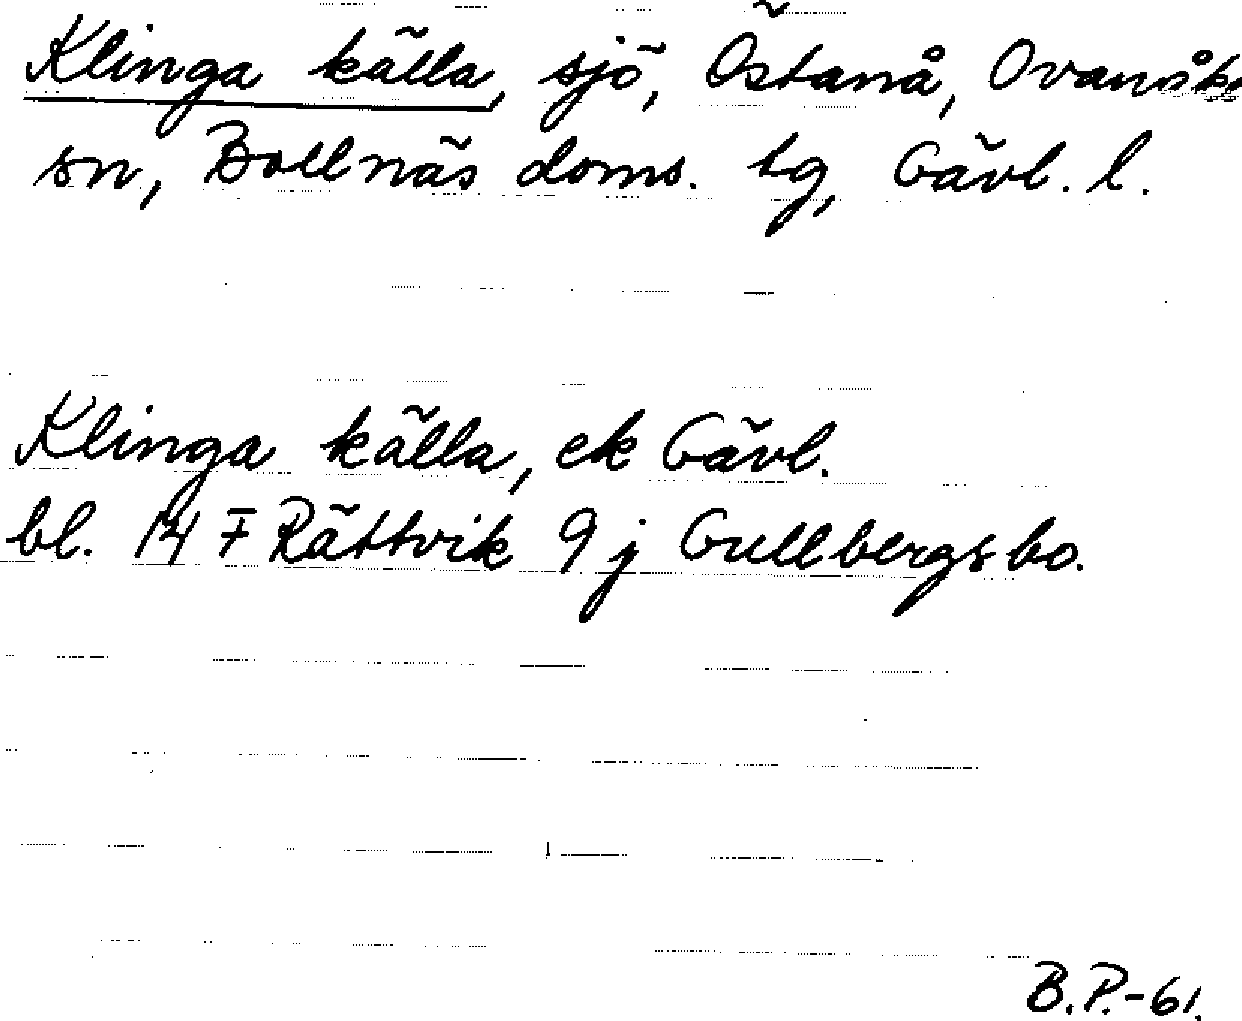 Klinga källa, sjö, Östanå, Ovanåk
sn, Bollnäs doms. tg, Gävl. l.
Klinga källa, ek Gävl.
bl. 14 F Rättvik 9 j Gullbergsbo.
B.P.-61.